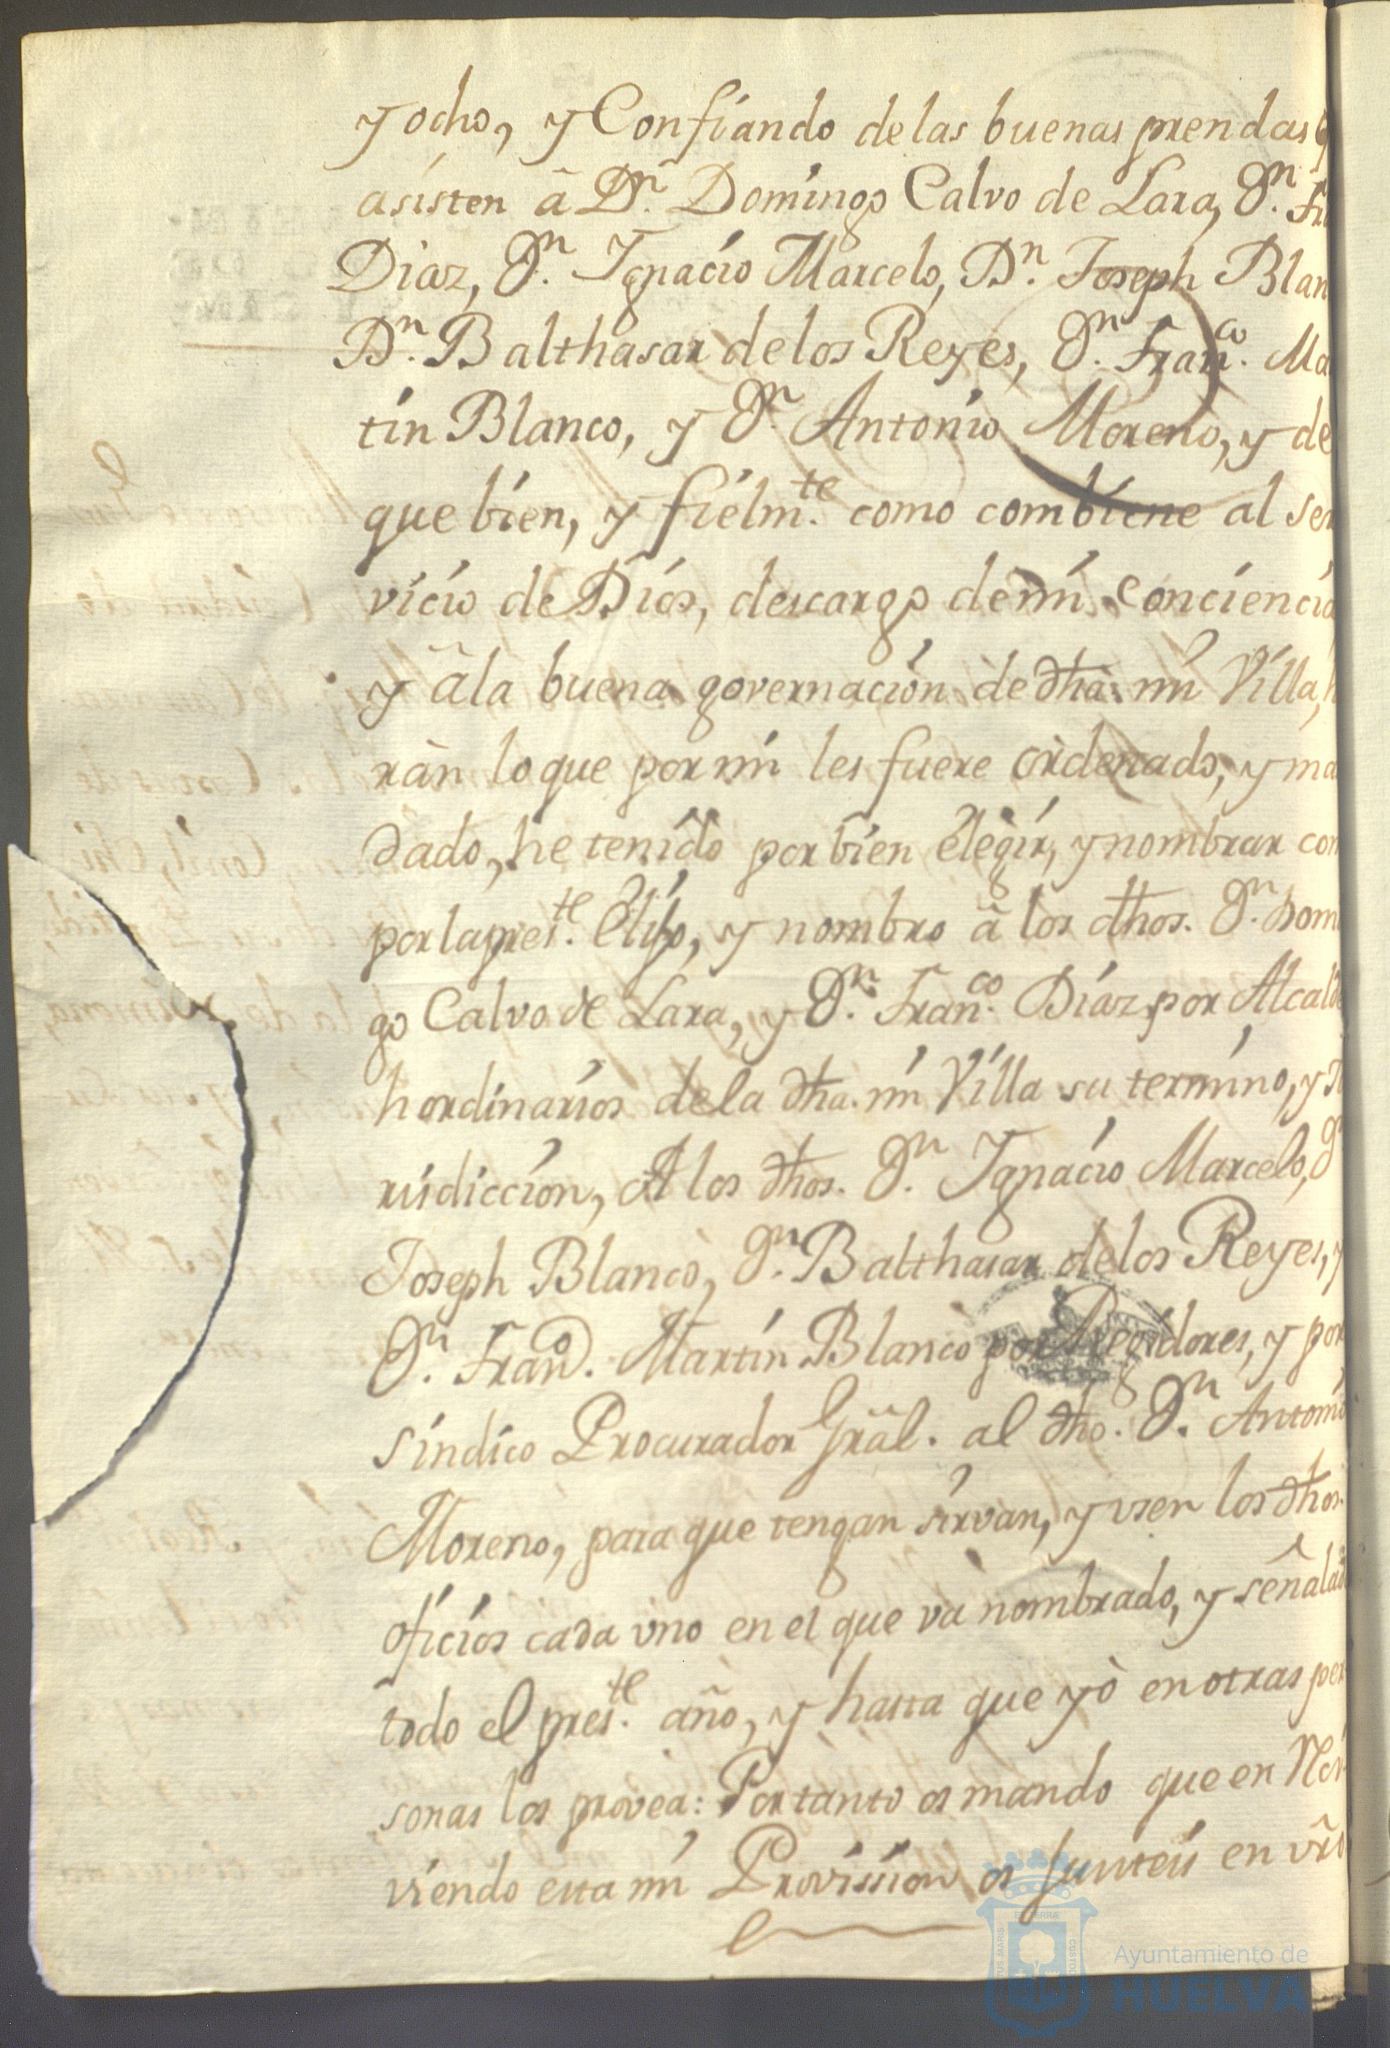 y ocho, y Confiando de las buenas prendas q
asisten â Dn. Domingo Calvo de Lara, Dn. Fr
Diaz, Dn. Ignacio Marcelo, Dn. Joseph Blan
Dn. Balthasar de los Reyes, Dn. Franco. Ma
tin Blanco, y Dn. Antonio Moreno, y de
que bien, y fielmte. como combiene al ser
vicio de Dios, descargo de mi conciencia
y âla buena governacion de dha. mi Villa, h
ràn lo que por mi les fuere òrdenado, y ma
dado, he tenido por bien êlegir, y nombrar com
por la preste. Elijo, y nombro â los dhos. Dn. Dom
go Calvo de Lara, y Dn. Franco. Diaz por Alcald
hordinarios de la dha. mi Villa su termino, y J
risdiccion, A los dhos. Dn. Ignacio Marcelo, Dn
Joseph Blanco, Dn. Balthasar de los Reyes, y
Dn. Franco. Martin Blanco por Regidores, y por
sindico Procurador Grãl. al dho. Dn. Antoni
Moreno, para que tengan sirvan, y usen los dhos.
oficios cada vno en el que và nombrado, y señalad
todo el preste. año, y hasta que yò en otras per
sonas los provea: Portanto os mando que en Reci
viendo esta mi Provission os Junteis en vrõ
Ayuntamiento de
HUELVA